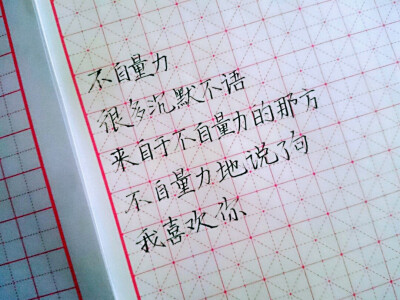 不自量力
很多沉默不语
来自于不自量力的那方
不自量力地说了句
我喜欢你